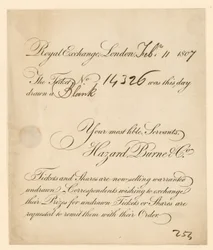 Royal Exchange, London, Feb. 11 1807
The Ticket No. 14,326 was this day
drawn a Blank
Your most hble. Servants,
Hazard, Burne & Co.
Tickets and Shares are now selling warranted
undrawn. Correspondents wishing to exchange
their Prizes for undrawn Tickets or Shares are
requested to send them with their Order.